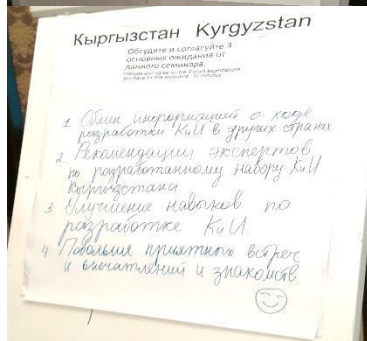 Кыргызстан Kyrgyzstan
Обсудите и согласуйте 3
основных ожидания от
данного семинара.
1 Обмен информацией о ходе
разработки КиИ в других странах
2. Рекомендации экспертов
по разработанному набору КиИ
Кыргызстана
3. Улучшение навыков по
разработке КиИ
4 Побольше приятных встреч
и впечатлений и знакомств